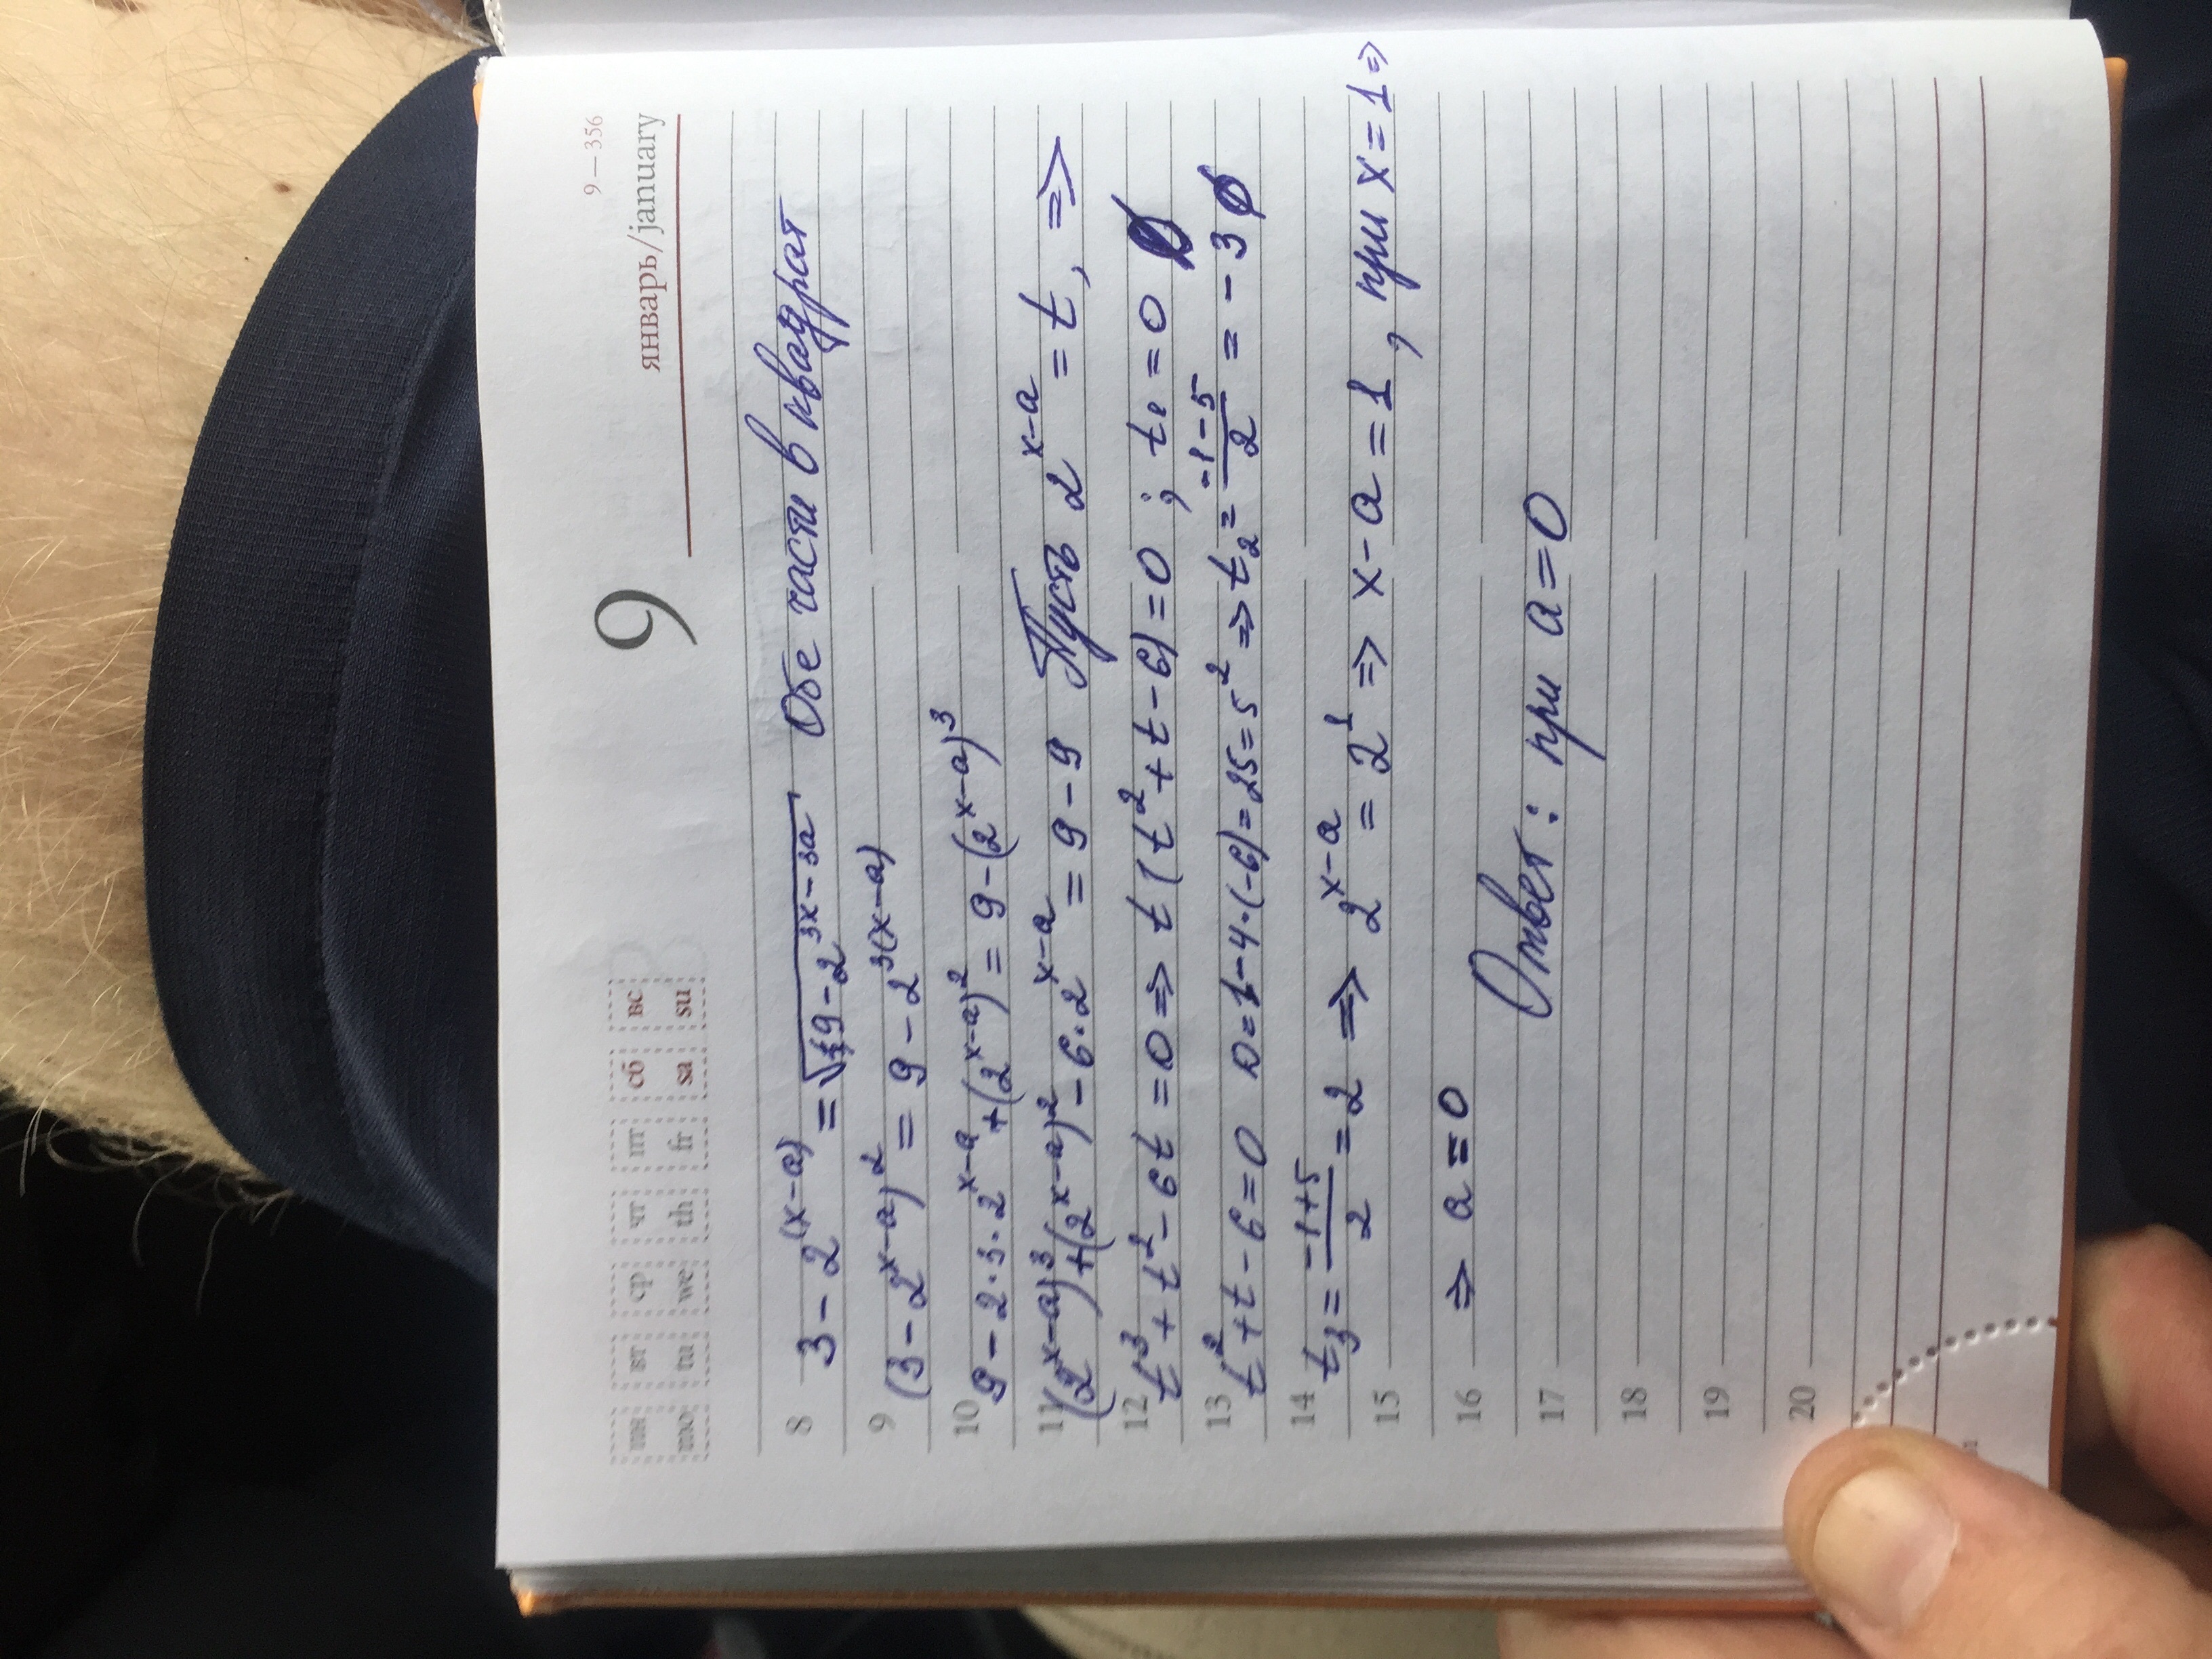 9 – 356
9 январь/january
пн вт ср чт пт сб вс
mo tu we th fr sa su
8 3 - 2^(x-a) = √(9 - 2^(3x-3a)) Обе части в квадрат
9 (3 - 2^(x-a))^2 = 9 - 2^(3(x-a))
10 9 - 2·3·2^(x-a) + (2^(x-a))^2 = 9 - (2^(x-a))^3
11 (2^(x-a))^3 + (2^(x-a))^2 - 6·2^(x-a) = 9 - 9 Пусть 2^(x-a) = t, ⇒
12 t^3 + t^2 - 6t = 0 ⇒ t(t^2 + t - 6) = 0 ; t₁ = 0
13 t^2 + t - 6 = 0 D = 1 - 4·(-6) = 25 = 5^2 ⇒ t₂ = (-1-5)/2 = -3 ∅
14 t₃ = (-1+5)/2 = 2 ⇒ 2^(x-a) = 2^1 ⇒ x - a = 1, при x = 1 ⇒
15
16 ⇒ a = 0
17 Ответ: при a = 0
18
19
20